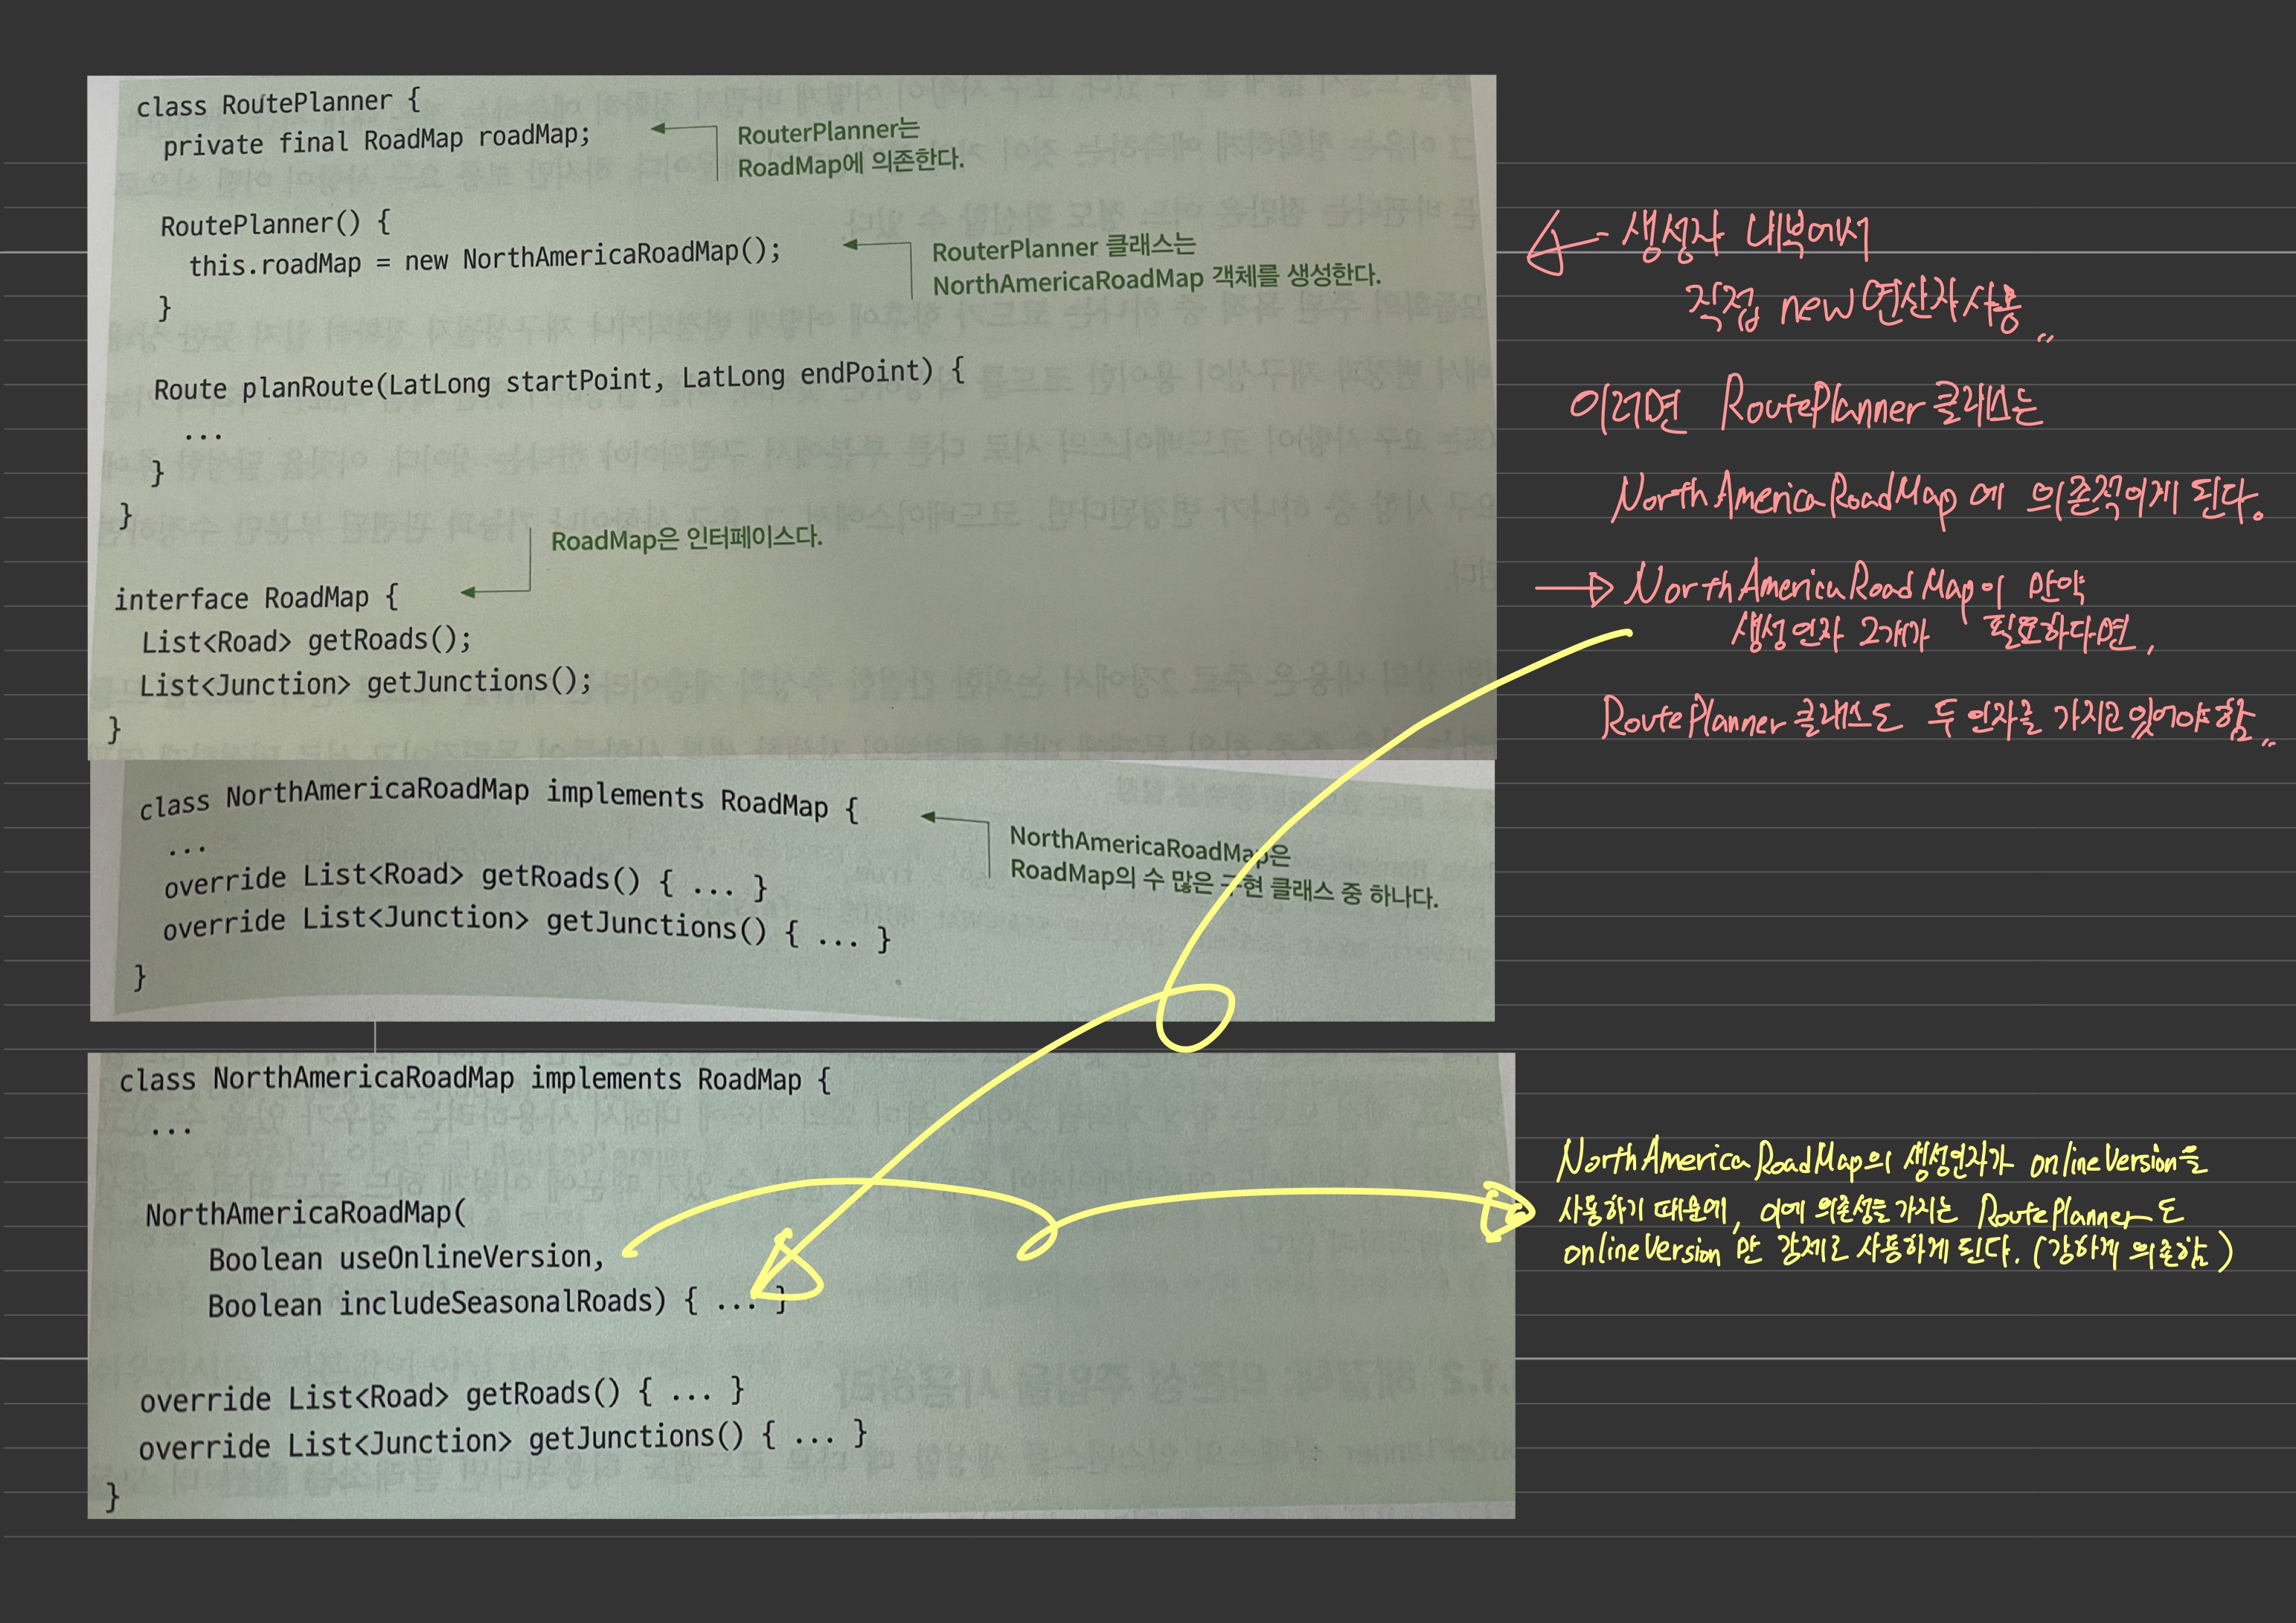 class RoutePlanner {
private final RoadMap roadMap;
RouterPlanner는
RoadMap에 의존한다.
RoutePlanner() {
this.roadMap = new NorthAmericaRoadMap();
RouterPlanner 클래스는
NorthAmericaRoadMap 객체를 생성한다.
}
Route planRoute(LatLong startPoint, LatLong endPoint) {
...
}
}
RoadMap은 인터페이스다.
interface RoadMap {
List<Road> getRoads();
List<Junction> getJunctions();
}
class NorthAmericaRoadMap implements RoadMap {
...
NorthAmericaRoadMap은
RoadMap의 수 많은 구현 클래스 중 하나다.
override List<Road> getRoads() { ... }
override List<Junction> getJunctions() { ... }
}
class NorthAmericaRoadMap implements RoadMap {
...
NorthAmericaRoadMap(
Boolean useOnlineVersion,
Boolean includeSeasonalRoads) { ... }
override List<Road> getRoads() { ... }
override List<Junction> getJunctions() { ... }
}
생성자 내부에서
직접 new 연산자 사용..
이러면 RoutePlanner 클래스는
NorthAmericaRoadMap에 의존적이게 된다.
→ NorthAmericaRoadMap이 만약
생성인자 2개가 필요하다면,
RoutePlanner 클래스도 두 인자를 가지고 있어야 함..
NorthAmericaRoadMap의 생성인자가 onlineVersion을
사용하기 때문에, 이에 의존성을 가지는 RoutePlanner도
onlineVersion 만 강제로 사용하게 된다. (강하게 의존함)